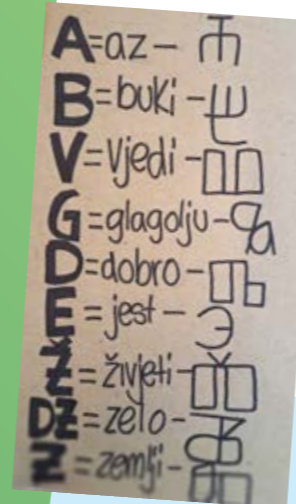 A=az – Ⰰ
B=buki – Ⰱ
V=vjedi – Ⰲ
G=glagolju – Ⰳ
D=dobro – Ⰴ
E=jest – Ⰵ
Ž=živjeti – Ⰶ
DZ=zelo – Ⰷ
Z=zemlji – Ⰸ